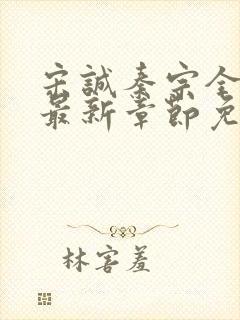 宋誠秦宗全
最新章節免
林害羞